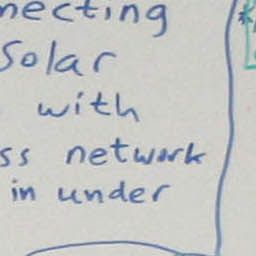 necting
Solar
with
ss network
in under